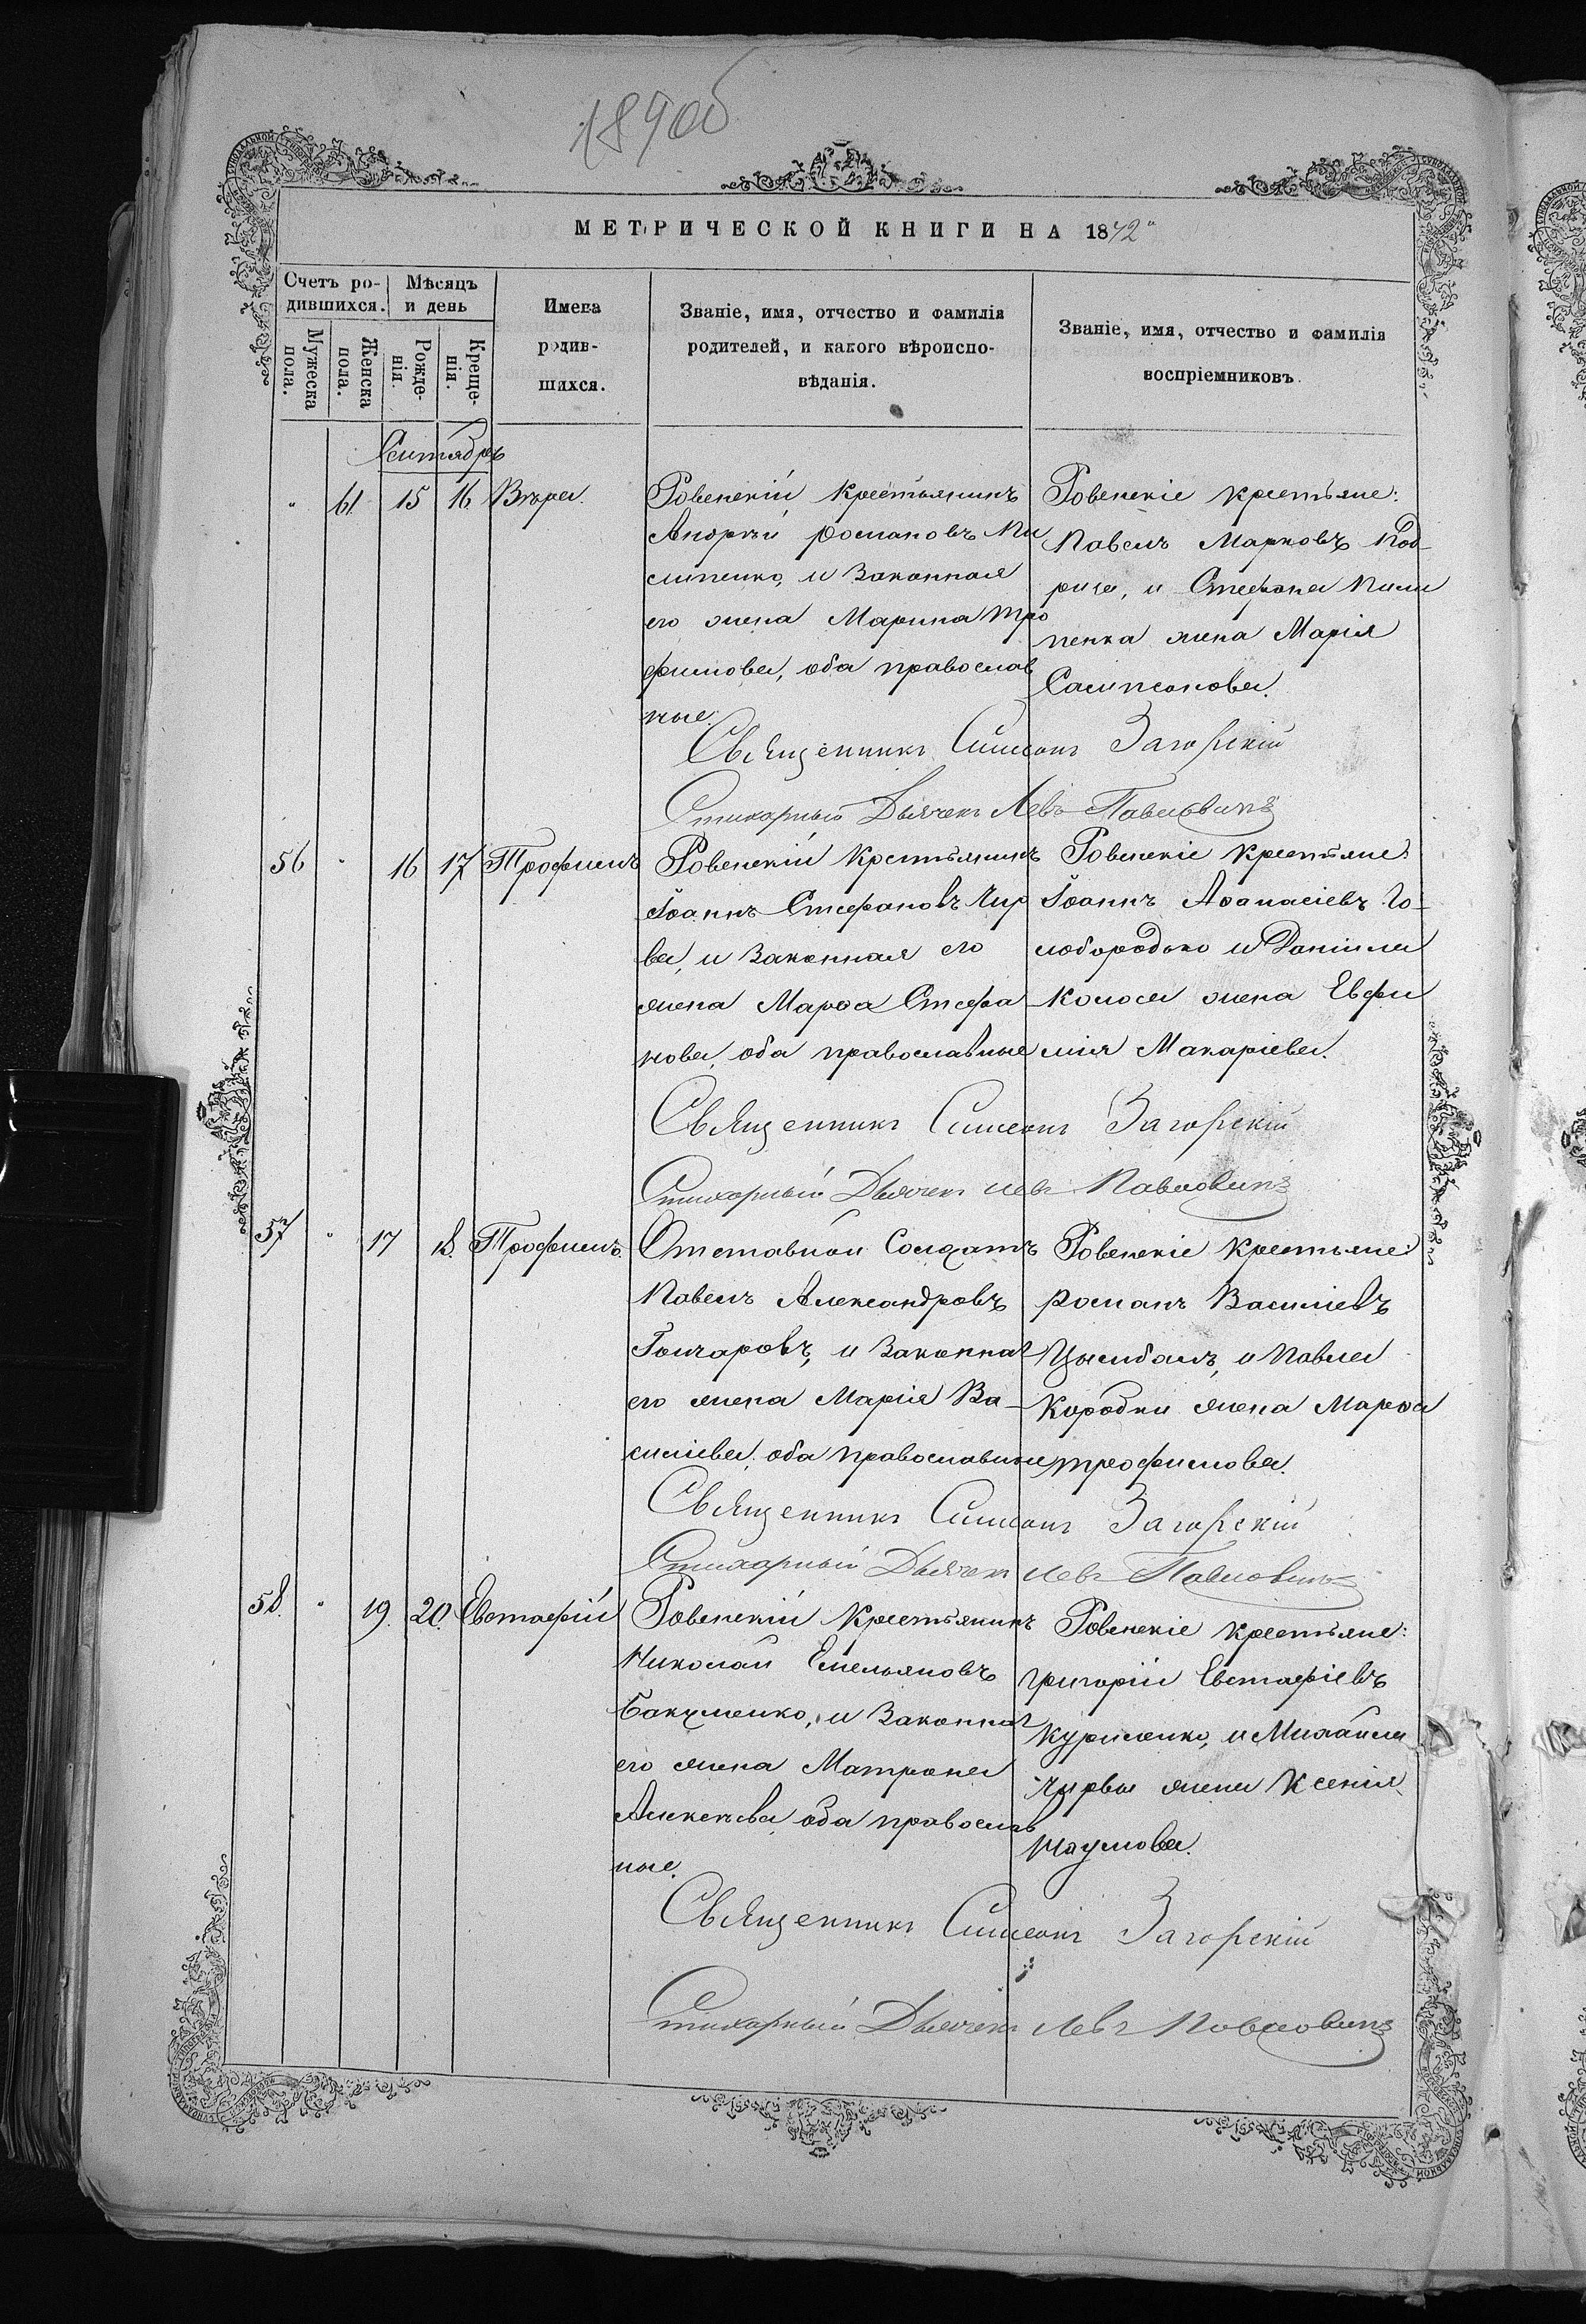 189об
МЕТРИЧЕСКОЙ КНИГИ НА 1872
Счетъ ро-
дившихся.
Мѣсяцъ
и день
Имена
родив-
шихся.
Званіе, имя, отчество и фамилія
родителей, и какого вѣроиспо-
вѣданія.
Званіе, имя, отчество и фамилія
воспріемниковъ.
Мужеска
пола.
Женска
пола.
Рожде-
нія.
Креще-
нія.
Сентябрь
" 61. 15 16 Вѣра.
Ровенскій крестьянинъ
Андрей Романовъ Пи
липенко, и законная
его жена Марина Тро
фимова, оба православ
ные.
Ровенскіе крестьяне:
Павелъ Марковъ
и Стефана Пили
пенка жена Марія
Сампсонова.
Священникъ Симеонъ Загорскій
Стихарный Дьячекъ Левъ Павловичъ
56 " 16 17 Трофимъ
Ровенскій крестьянинъ
Іоаннъ Стефановъ Чир
ва, и законная его
жена Марѳа Стефа
нова, оба православные
Ровенскіе крестьяне:
Іоаннъ Аѳанасіевъ Го-
лобородько и Даніила
Колоса жена Евфи
мія Макаріева.
Священникъ Симеонъ Загорскій
Стихарный Дьячекъ Левъ Павловичъ
57 " 17 18. Трофимъ.
Отставной Солдатъ
Павелъ Александровъ
Гончаровъ, и законная
его жена Марія Ва-
силіева, оба православные
Ровенскіе крестьяне:
Романъ Василіевъ
Цымбалъ, и Павла
Коробки жена Марѳа
Трофимова.
Священникъ Симеонъ Загорскій
Стихарный Дьячекъ Левъ Павловичъ
58. " 19. 20. Евстафій
Ровенскій крестьянинъ
Николай Емельяновъ
Бакуменко, и законная
его жена Матрона
Алексѣева оба правосла
ные.
Ровенскіе крестьяне:
Григорій Евстафіевъ
Куриленко, и Михаила
Чирвы жена Ксенія
Наумова.
Священникъ Симеонъ Загорскій
Стихарный Дьячекъ Левъ Павловичъ